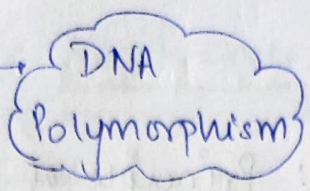 DNA
Polymorphism